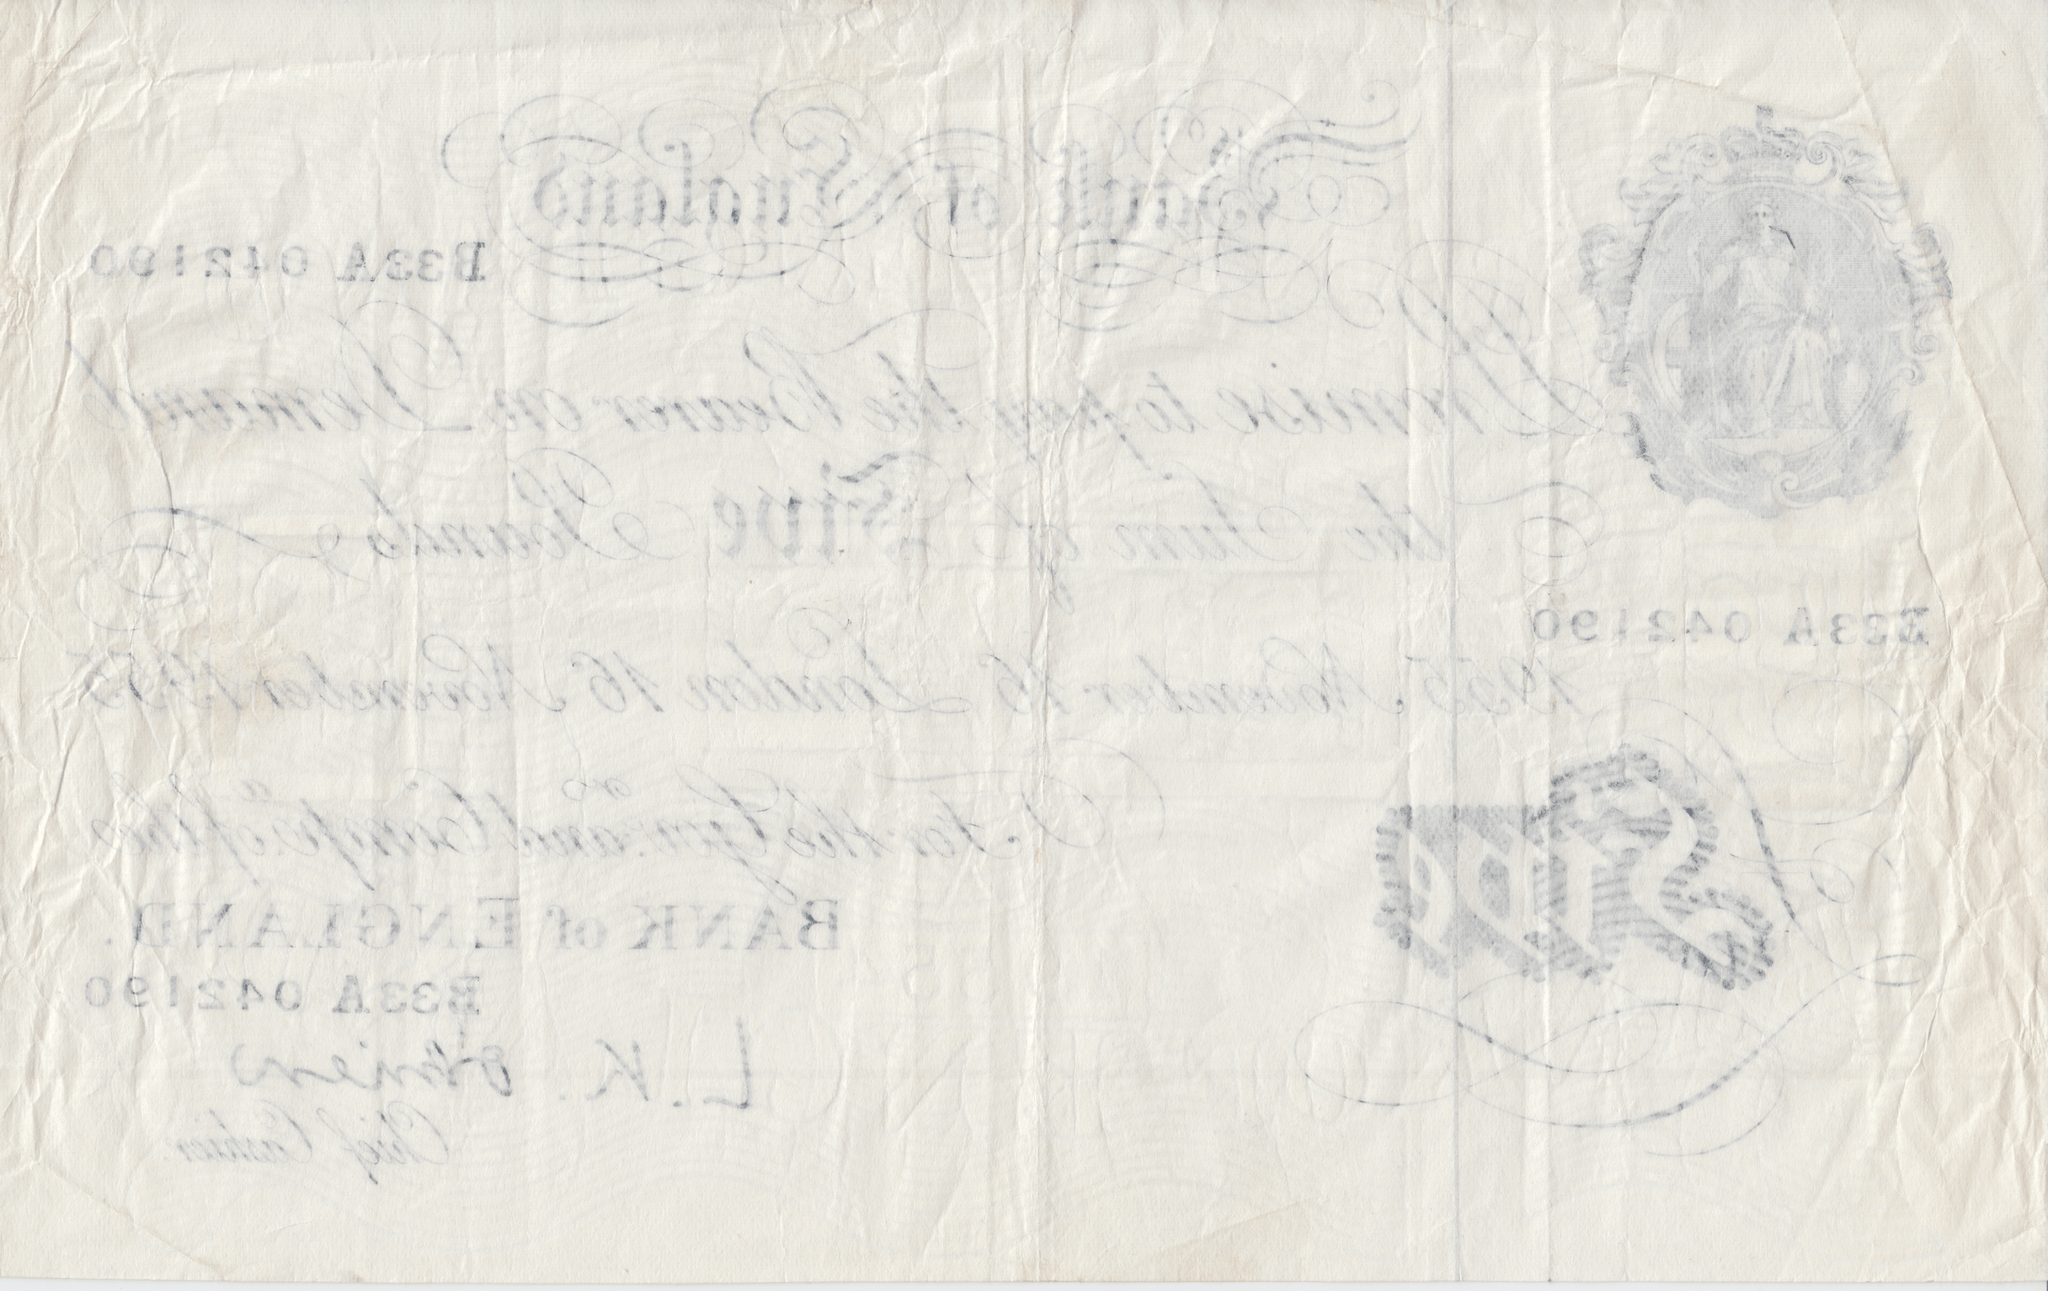 Bank of England
B33A 042190
Promise to pay the Bearer on Demand
the Sum of Five Pounds
B33A 042190
1955 November 16 London 16 November 1955
For the Gov.r and Comp.a of the
BANK of ENGLAND.
Five
B33A 042190
L.K. O'Brien
Chief Cashier.